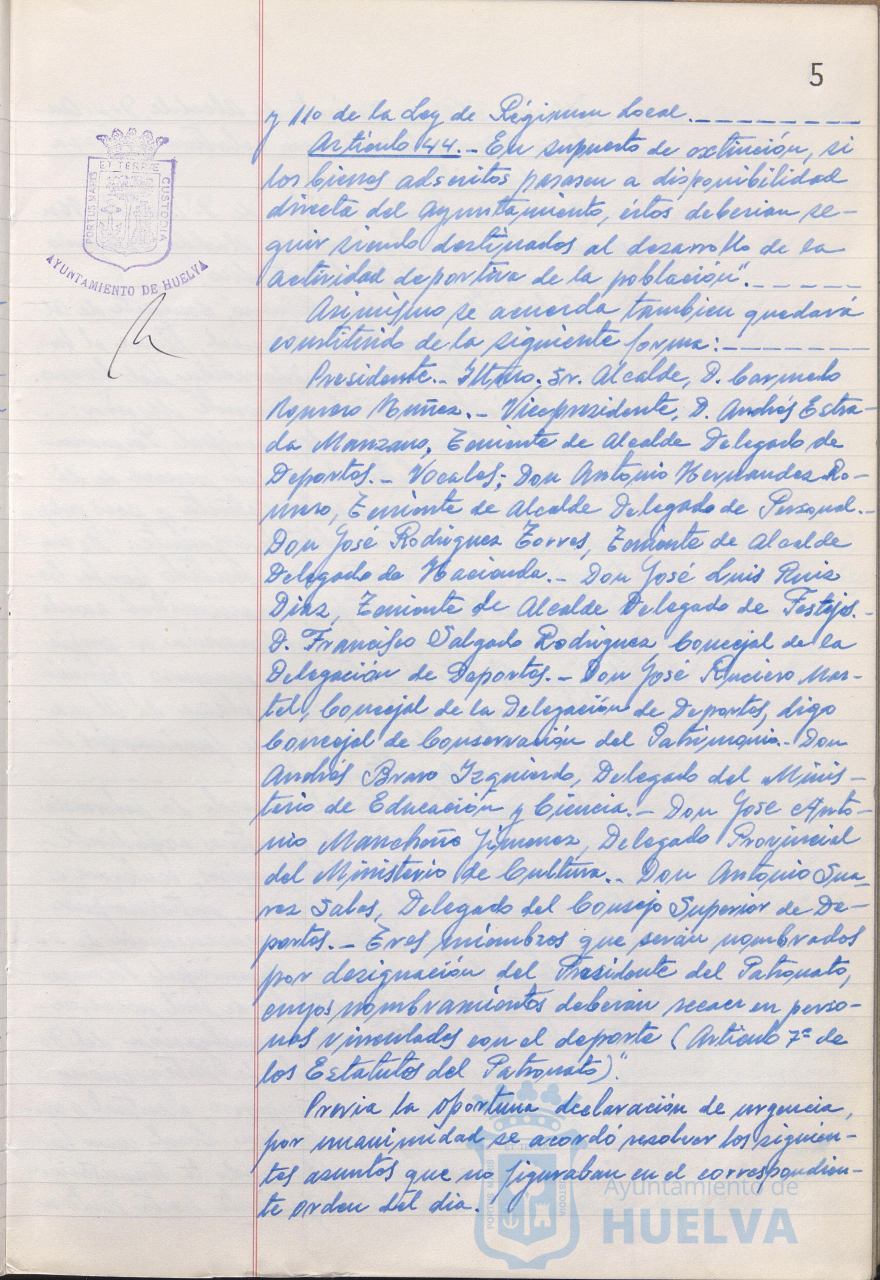 5
y 110 de la Ley de Régimen Local.
Artículo 44.- En supuesto de extinción, si
los bienes adscritos pasasen a disponibilidad
directa del Ayuntamiento, éstos deberian se-
guir siendo destinados al desarrollo de la
actividad deportiva de la población".
Asimismo se acuerda tambien quedará
constituido de la siguiente forma:
Presidente.- Iltmo. Sr. Alcalde, D. Carmelo
Romero Nuñez.- Vicepresidente, D. Andrés Estra-
da Manzano, Teniente de Alcalde Delegado de
Deportes.- Vocales; Don Antonio Hernandez Ro-
mero, Teniente de Alcalde Delegado de Personal.-
Don José Rodriguez Torres, Teniente de Alcalde
Delegado de Hacienda.- Don José Luis Ruiz
Diaz, Teniente de Alcalde Delegado de Festejos.-
D. Francisco Salgado Rodriguez, Concejal de la
Delegación de Deportes.- Don José Ruciero Mar-
tel, Concejal de la Delegación de Deportes, digo
Concejal de Conservación del Patrimonio.- Don
Andrés Bravo Izquierdo, Delegado del Minis-
terio de Educación y Ciencia.- Don Jose Anto-
nio Mancheño Jimenez, Delegado Provincial
del Ministerio de Cultura.- Don Antonio Sua-
rez Salas, Delegado del Consejo Superior de De-
portes.- Tres miembros que serán nombrados
por designación del Presidente del Patronato,
cuyos nombramientos deberán recaer en perso-
nas vinculadas con el deporte (Articulo 7º de
los Estatutos del Patronato)".
Previa la oportuna declaración de urgencia,
por unanimidad se acordó resolver los siguien-
tes asuntos que no figuraban en el correspondien-
te orden del dia.
PORTUS MARIS ET TERRE CUSTODIA
AYUNTAMIENTO DE HUELVA
PORTUS MARIS ET TERRE CUSTODIA
Ayuntamiento de
HUELVA